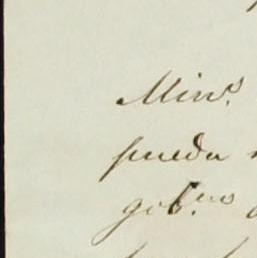 Minᵒˢ.
pueda
gobⁿᵒ.